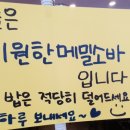 은
시원한메밀소바
입니다
밥은 적당히 덜어드세요
하루 보내세요~